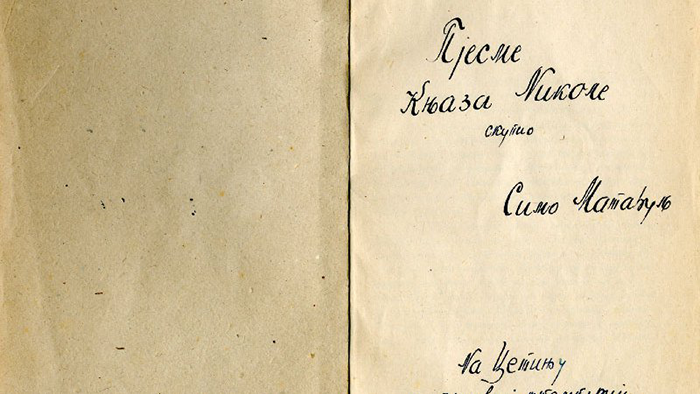 Пјесме
Књаза Николе
скупио
Симо Матавуљ
На Цетињу